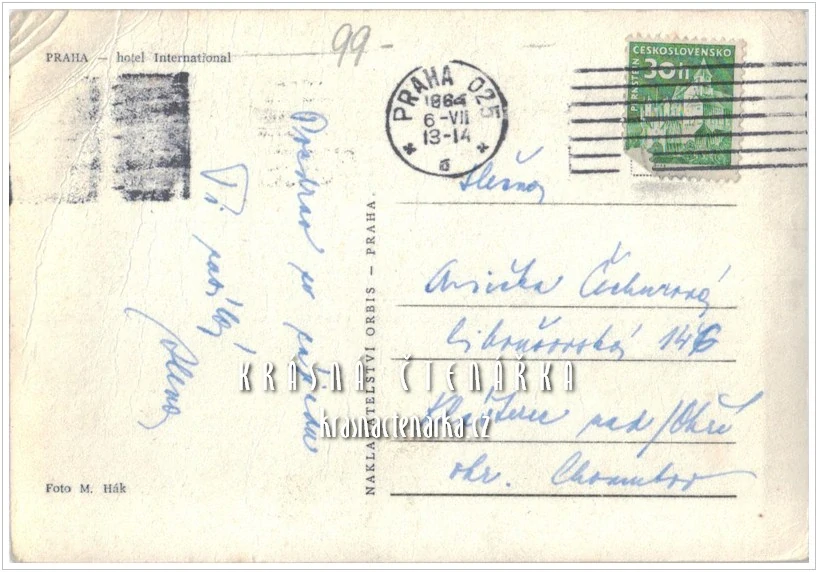 99-
PRAHA — hotel International
PRAHA 025
1964
6-VII
13-14
ČESKOSLOVENSKO
30 h
PERNŠTEJN
Pozdrav po
Ti posílá
Alena
NAKLADATELSTVÍ ORBIS — PRAHA.
Slečna
Anička
146
Klášterec nad/Ohří
okr. Chomutov
KRÁSNÁ ČTENÁŘKA
krasnactenarka.cz
Foto M. Hák